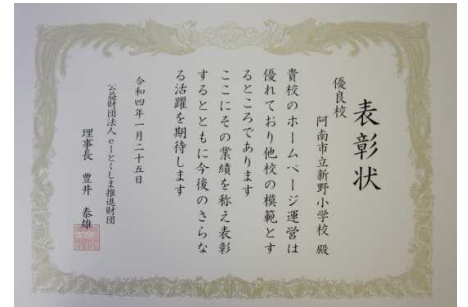 表彰状
優良校
阿南市立新野小学校 殿
貴校のホームページ運営は
優れており他校の模範とす
るところであります
ここにその業績を称え表彰
するとともに今後のさらな
る活躍を期待します
令和四年一月二十五日
公益財団法人 e-とくしま推進財団
理事長 豊井 泰雄